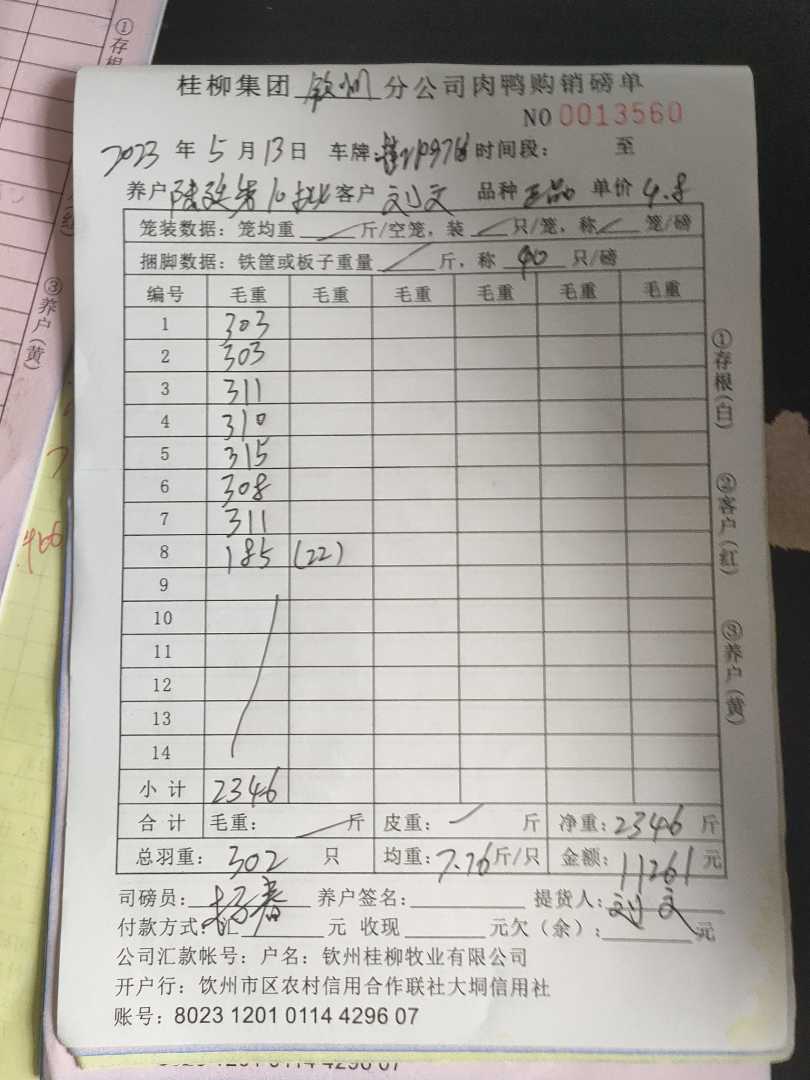 桂柳集团 钦州 分公司肉鸭购销磅单
NO 0013560
2023 年 5 月 13 日 车牌: 时间段: 至
养户 10 客户 刘文 品种 正品 单价 4.8
笼装数据: 笼均重 斤/空笼, 装 只/笼, 称 笼/磅
捆脚数据: 铁筐或板子重量 斤, 称 40 只/磅
编号 毛重 毛重 毛重 毛重 毛重 毛重
1 303
2 303
3 311
4 310
5 315
6 308
7 311
8 185 (22)
9
10
11
12
13
14
小计 2346
合计 毛重: 斤 皮重: 斤 净重: 2346 斤
总羽重: 302 只 均重: 7.76 斤/只 金额: 11261 元
司磅员: 杨春 养户签名: 提货人: 刘文
付款方式: 汇 元 收现 元欠(余): 元
公司汇款帐号: 户名: 钦州桂柳牧业有限公司
开户行: 饮州市区农村信用合作联社大垌信用社
账号: 8023 1201 0114 4296 07
①存根(白)
②客户(红)
③养户(黄)
①存根
③养户(黄)
8023 1201 0114 4296 07